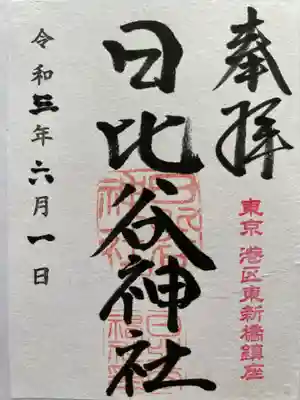 奉拝
東京 港区東新橋鎮座
日比谷神社
令和三年六月一日